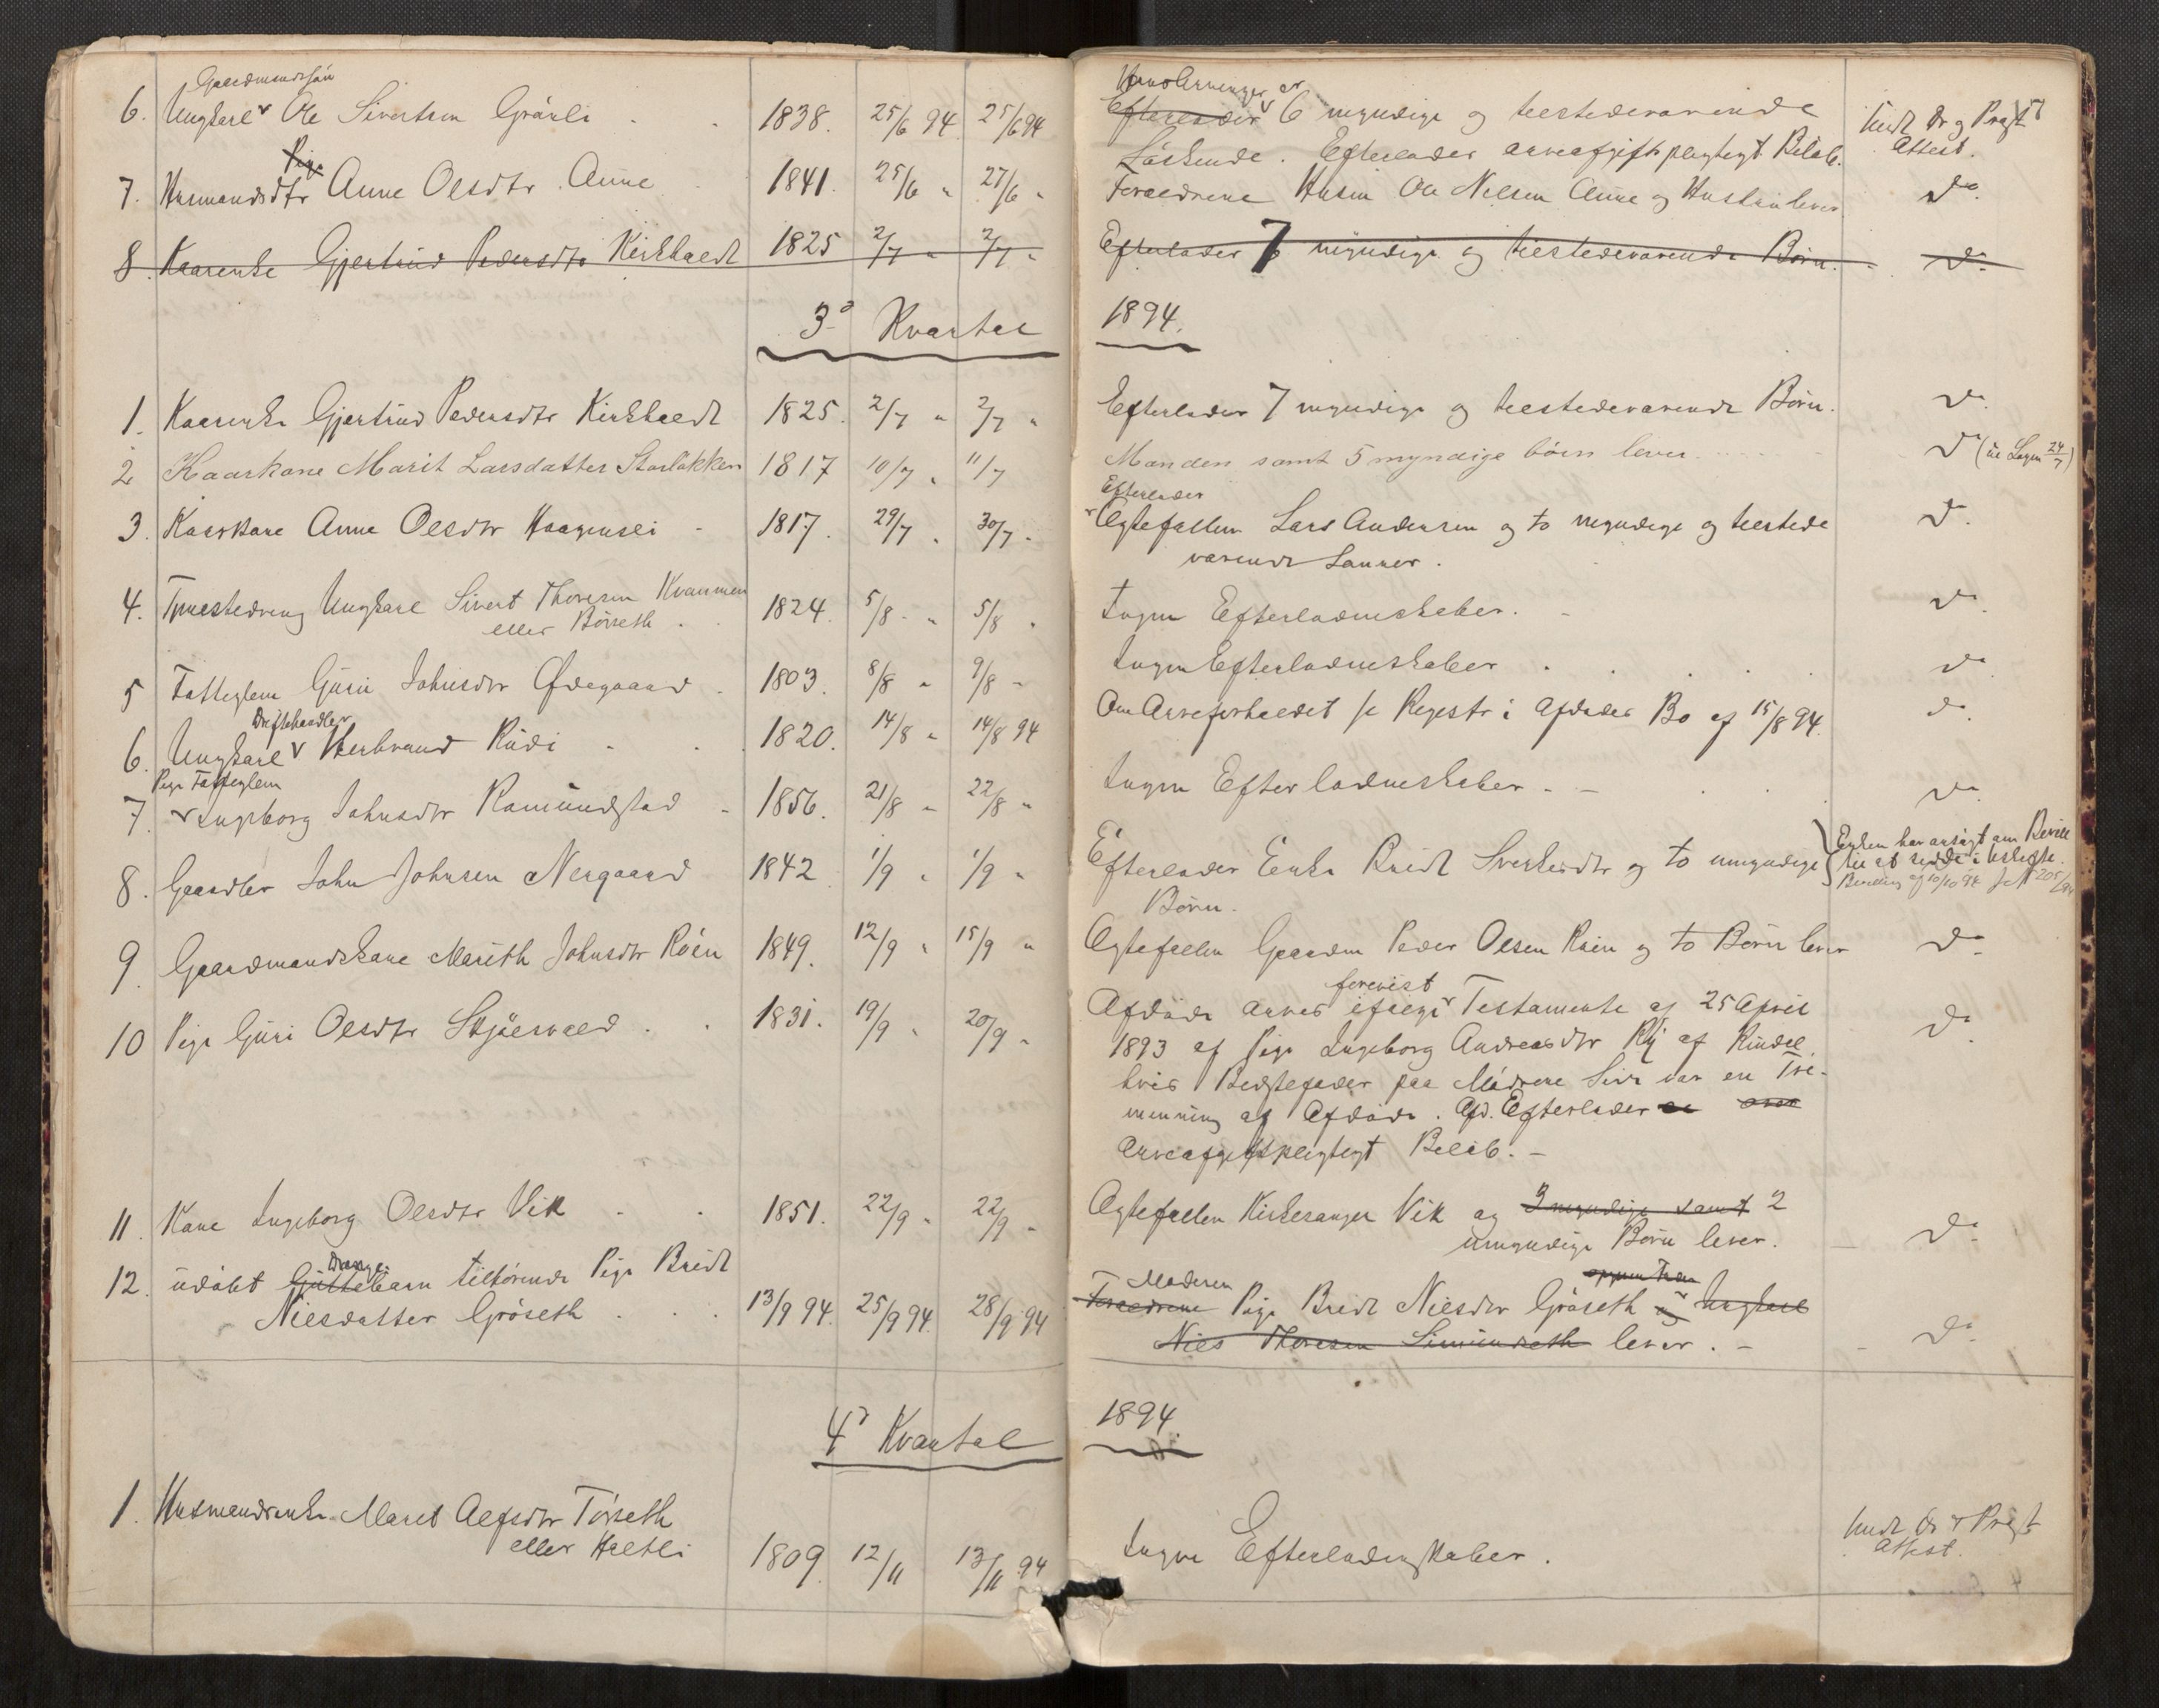 Gaardmandssön
6. Ungkarl Ole Sivertsen Gråvli 1838. 25/6 94 25/6 94 Hans Arvinger er Efterlader 6 myndige og tilstedeværende Meldt Dr og Prgst Attest.
Söskende. Efterlader arveafgiftspligtigt Beløb.
Pige
7. Husmandsdtr Anne Olsdtr Aune 1841. 25/6 " 27/6 " Forældrene Husm Ole Nilsen Aune og Hustru lever do
8. Kaarenke Gjertrud Pedersdtr Kirkholdt 1825 2/7 " 2/7 " Efterlader 7 myndige og tilstedeværende Børn. do
3d Kvartal 1894.
1. Kaarenke Gjertrud Pedersdtr Kirkholdt 1825. 2/7 " 2/7 " Efterlader 7 myndige og tilstedeværende Børn. do
2 Kaarkone Marit Larsdatter Storløkken 1817 10/7 " 11/7 Manden samt 5 myndige börn lever do (til Lagm 24/7)
Efterlader
3. Kaarkone Anne Olsdtr Haagensli 1817. 29/7 " 30/7 " Ægtefællen Lars Andersen og to myndige og tilstede do
værende Sønner.
4. Tjenestedreng Ungkarl Sivert Thoresen Kvammen 1824. 5/8 " 5/8 " Ingen Efterladenskaber. do
eller Börseth
5 Fattiglem Guri Johnsdtr Ødegaard 1803. 8/8 " 9/8 " Ingen Efterladenskaber do
Driftehandler
6. Ungkarl Herbrand Rudi 1820. 14/8 " 14/8 94 Om Arveforholdet se Registr i Afdødes Bo af 15/8 94. do
Pige Fattiglem
7. Ingeborg Johnsdtr Ramundstad 1856. 21/8 " 22/8 " Ingen Efterladenskaber do
8. Gaardbr John Johnsen Nergaard 1842 1/9 " 1/9 " Efterlader Enke Brit Sverkesdtr og to umyndige Enken har ansøgt om Bevill
til at sidde i uskifte.
Bevilling af 10/10 94 Jr No 205/94
Børn.
9 Gaardmandskone Marith Johnsdtr Roen 1849. 12/9 " 15/9 " Ægtefællen Gaardm Peder Olsen Roen og to Børn lever do
forevist
10 Pige Guri Olsdtr Skjölsvold 1831. 19/9 " 20/9 " Afdøde arves ifølge Testamente af 25 April do
1893 af Pige Ingeborg Andreasdtr Rij af Rindal.
hvis Bedstefader paa Mødrene Side var en Tre-
menning af Afdøde. Afd. Efterlader
Arveafgiftspligtigt Beløb. –
11 Kone Ingeborg Olsdtr Vik 1851. 22/9 " 22/9 " Ægtefællen Kirkesanger Vik og 3 myndige samt 2 do
umyndige Børn lever.
Drenge
12. udøbt Guttebarn tilhørende Pige Brit
Nilsdatter Gröseth 13/9 94. 25/9 94. 28/9 94 Moderen Forældrene Pige Brit Nilsdtr Gröseth og Ungkarl
Nils Thoresen lever. – do
4d Kvartal 1894.
1. Husmandsenke Marit Olufsdtr Törseth
eller Haltli 1809. 12/11 13/11 94 Ingen Efterladenskaber. Meldt Dr & Prgst Attest.